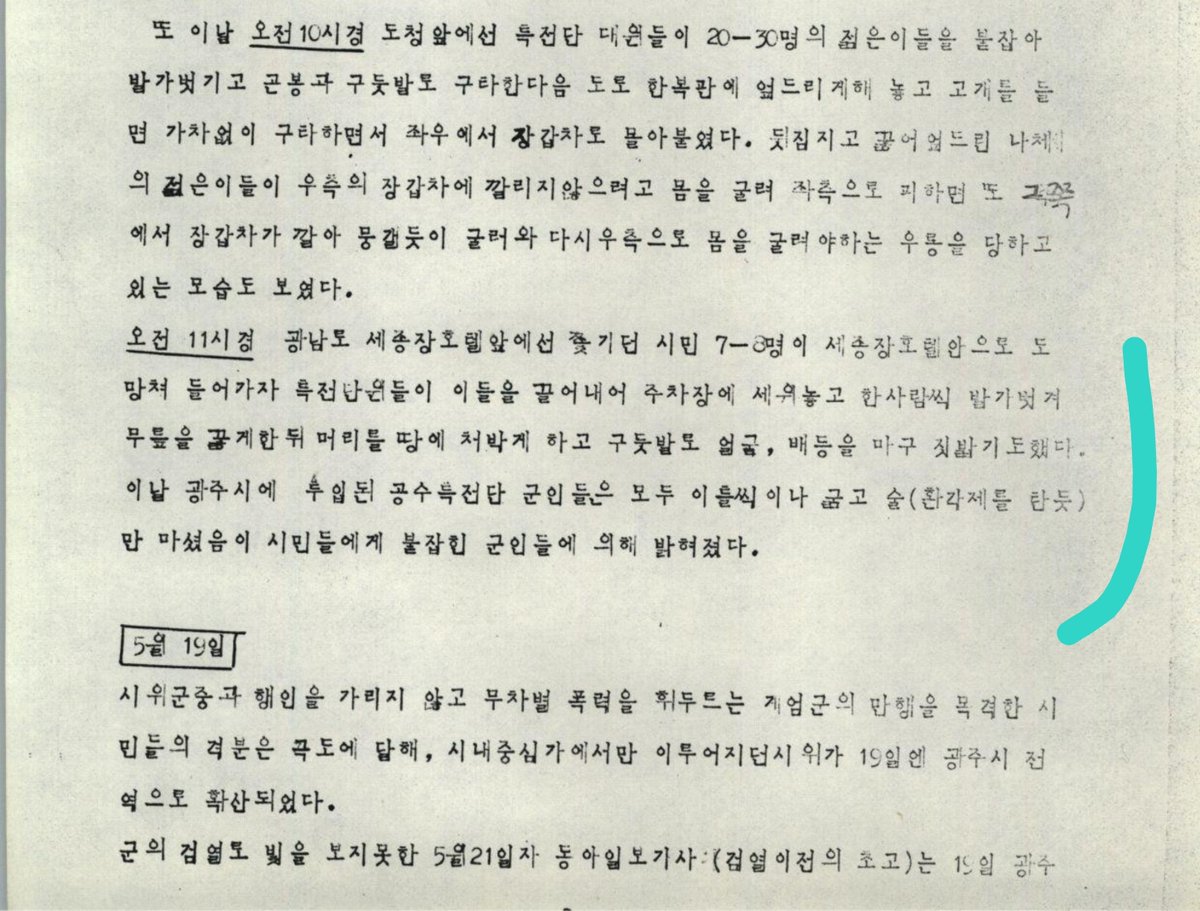 또 이날 오전10시경 도청앞에선 특전단 대원들이 20-30명의 젊은이들을 붙잡아
발가벗기고 곤봉과 구둣발로 구타한다음 도로 한복판에 엎드리게해 놓고 고개를 들
면 가차없이 구타하면서 좌우에서 장갑차로 몰아붙였다. 뒷짐지고 끓어엎드린 나체
의 젊은이들이 우측의 장갑차에 깔리지않으려고 몸을 굴려 좌측으로 피하면 또
에서 장갑차가 깔아 뭉갤듯이 굴러와 다시우측으로 몸을 굴려야하는 우롱을 당하고
있는 모습도 보였다.
오전 11시경 광남로 세종장호텔앞에선 쫓기던 시민 7-8명이 세종장호텔안으로 도
망쳐 들어가자 특전단원들이 이들을 끌어내어 주차장에 세워놓고 한사람씩 발가벗겨
무릎을 꿇게한뒤 머리를 땅에 처박게 하고 구둣발로 얼굴, 배등을 마구 짓밟기도했다.
이날 광주시에 투입된 공수특전단 군인들은 모두 이틀씩이나 굶고 술(환각제를 탄듯)
만 마셨음이 시민들에게 붙잡힌 군인들에 의해 밝혀졌다.
5월 19일
시위군중과 행인을 가리지 않고 무차별 폭력을 휘두르는 계엄군의 만행을 목격한 시
민들의 격분은 극도에 달해, 시내중심가에서만 이루어지던시위가 19일엔 광주시 전
역으로 확산되었다.
군의 검열로 빛을 보지못한 5월21일자 동아일보기사 (검열이전의 초고)는 19일 광주